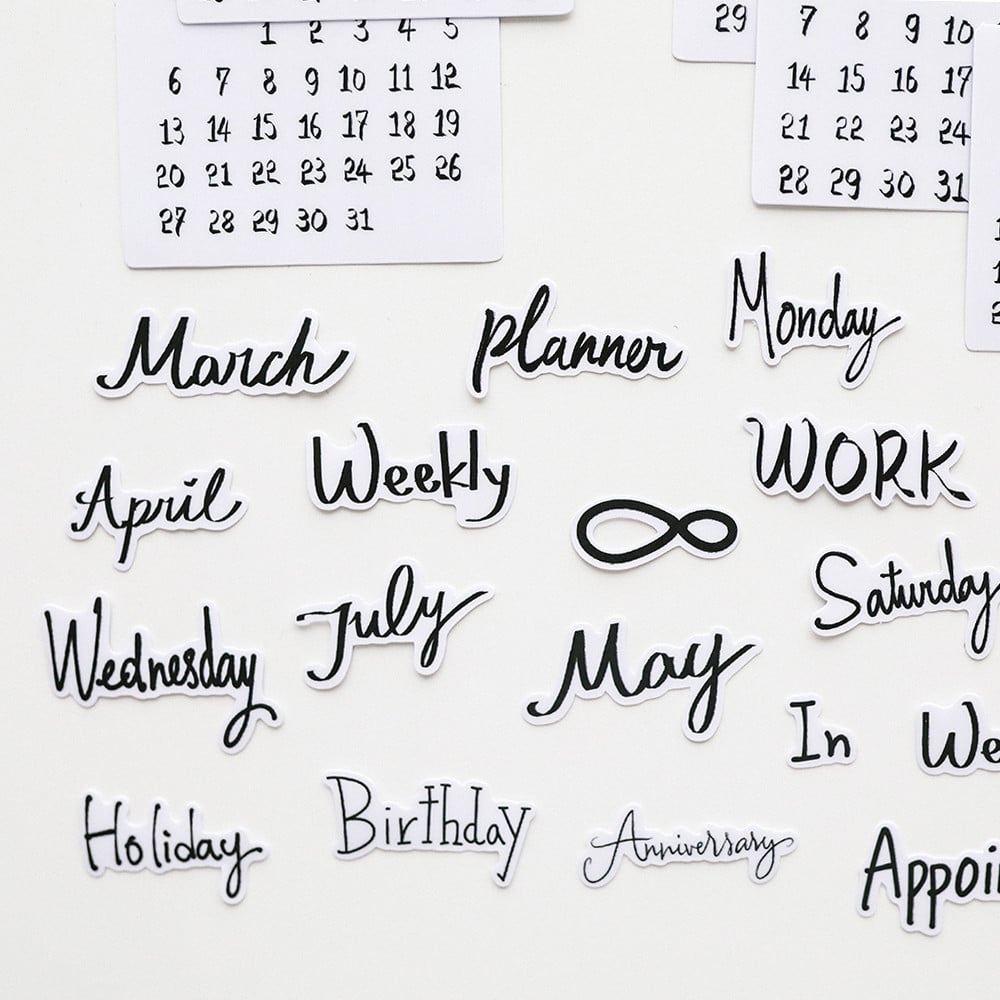 1 2 3 4 5
6 7 8 9 10 11 12
13 14 15 16 17 18 19
20 21 22 23 24 25 26
27 28 29 30 31
29
7 8 9 10
14 15 16 17
21 22 23 24
28 29 30 31
March
planner
Monday
April
Weekly
WORK
Wednesday
July
May
Saturday
In
We
Holiday
Birthday
Anniversary
Appoi